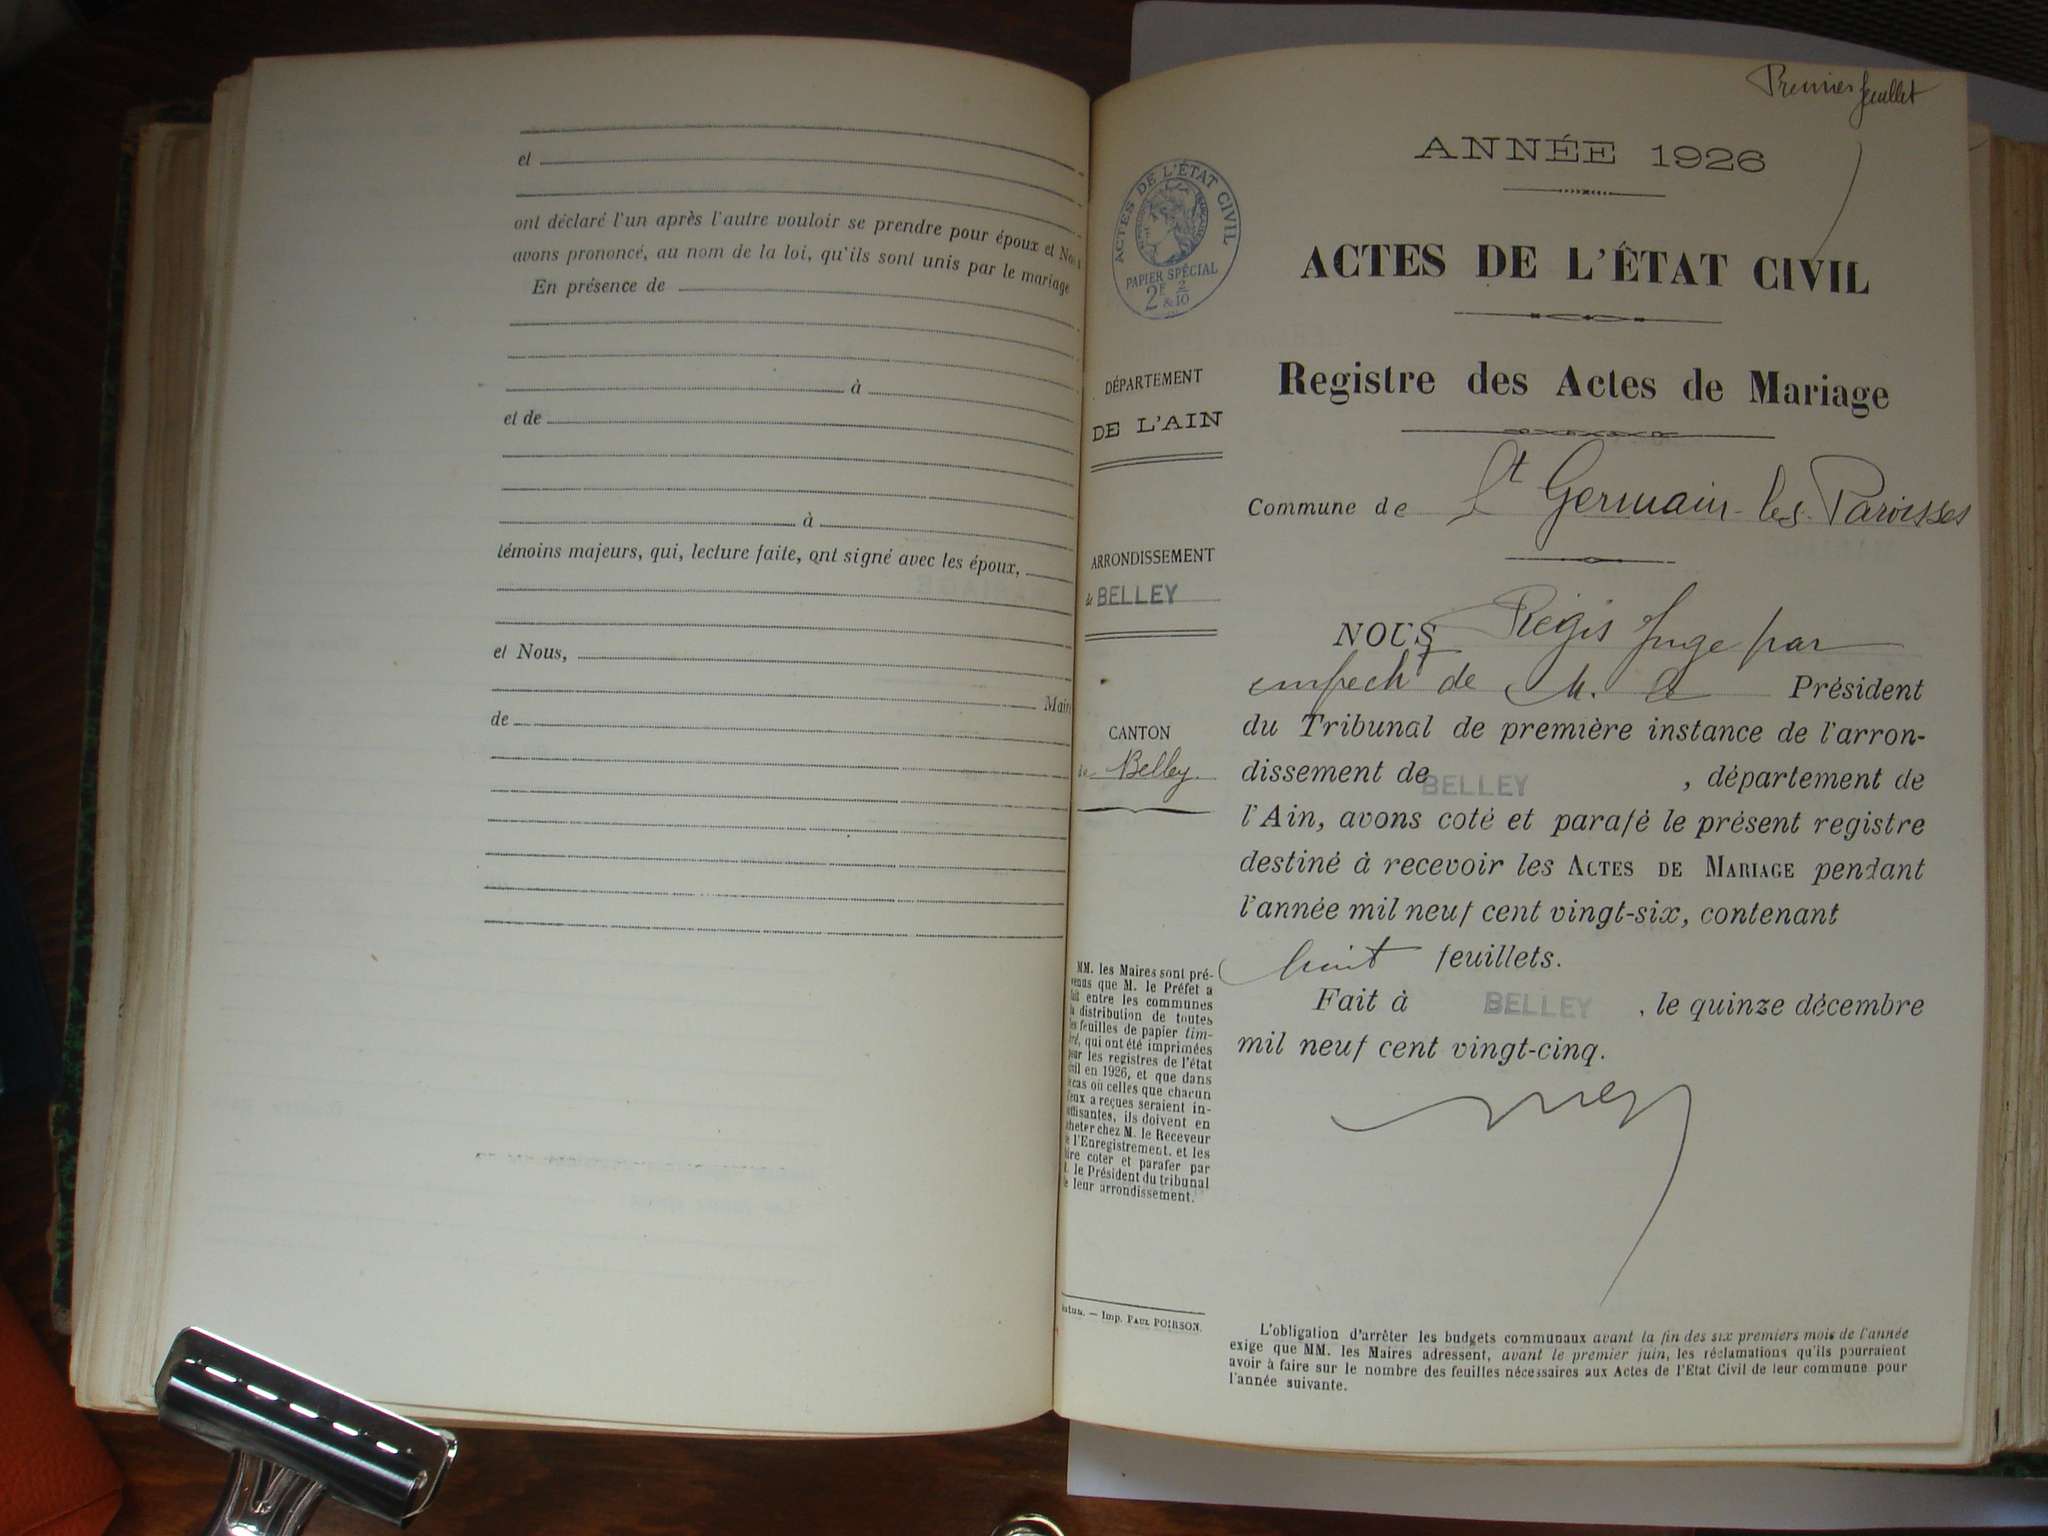 et
ont déclaré l'un après l'autre vouloir se prendre pour époux et Nous
avons prononcé, au nom de la loi, qu'ils sont unis par le mariage
En présence de
à
et de
à
témoins majeurs, qui, lecture faite, ont signé avec les époux,
et Nous,
Maire
de
Premier feuillet
ANNÉE 1926
ACTES DE L'ÉTAT CIVIL
PAPIER SPÉCIAL
2F 2/10
&
ACTES DE L'ÉTAT CIVIL
Registre des Actes de Mariage
DÉPARTEMENT
DE L'AIN
Commune de St Germain-les-Paroisses
ARRONDISSEMENT
de BELLEY
CANTON
de Belley
NOUS Régis Juge par
empecht de M. le Président
du Tribunal de première instance de l'arron-
dissement de BELLEY, département de
l'Ain, avons coté et parafé le présent registre
destiné à recevoir les ACTES DE MARIAGE pendant
l'année mil neuf cent vingt-six, contenant
huit feuillets.
Fait à BELLEY, le quinze décembre
mil neuf cent vingt-cinq.
MM. les Maires sont pré-
venus que M. le Préfet a
fait entre les communes
la distribution de toutes
les feuilles de papier tim-
bré, qui ont été imprimées
pour les registres de l'état
civil en 1926, et que dans
le cas où celles que chacun
d'eux a reçues seraient in-
suffisantes, ils doivent en
acheter chez M. le Receveur
de l'Enregistrement, et les
faire coter et parafer par
M. le Président du tribunal
de leur arrondissement.
Imp. PAUL POIRSON.
L'obligation d'arrêter les budgets communaux avant la fin des six premiers mois de l'année
exige que MM. les Maires adressent, avant le premier juin, les réclamations qu'ils pourraient
avoir à faire sur le nombre des feuilles nécessaires aux Actes de l'Etat Civil de leur commune pour
l'année suivante.